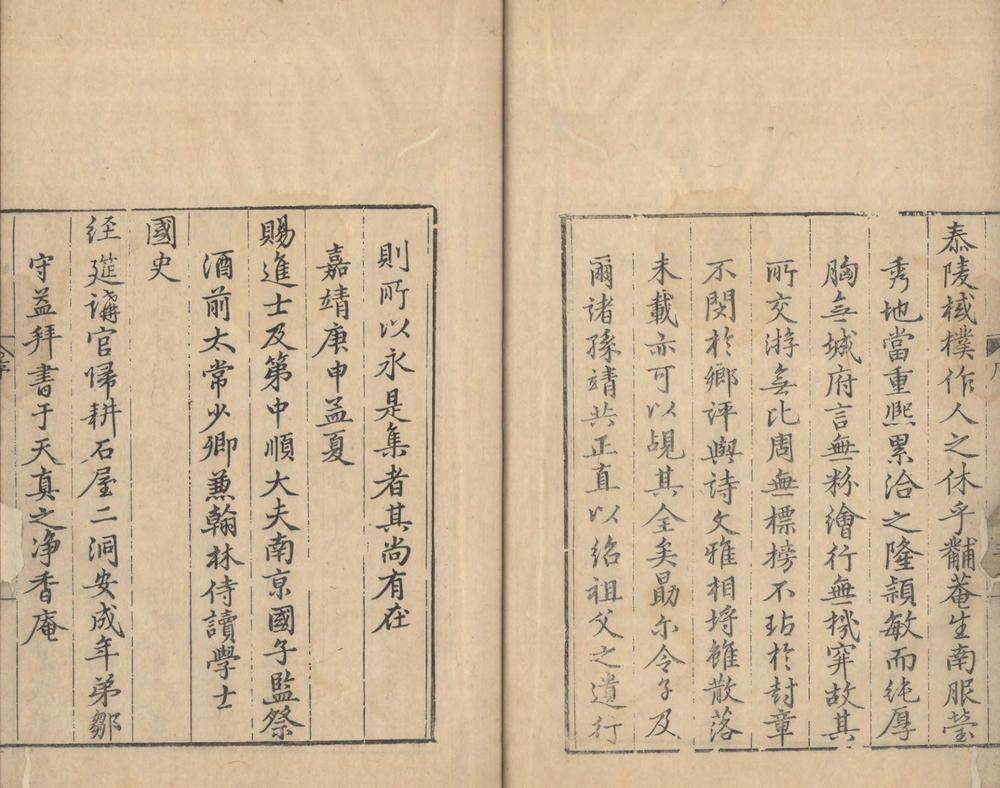 泰陵棫樸作人之休乎黼菴生南服瑩
秀地當重熙累洽之隆頴敏而純厚
胸無城府言無粉繪行無機穽故其
所交游無比周無標榜不玷於封章
不閔於鄉評與詩文雅相埒雖散落
未載亦可以覘其全矣勗尔令子及
爾諸孫靖共正直以紹祖父之遺行
則所以永是集者其尚有在
嘉靖庚申孟夏
賜進士及第中順大夫南京國子監祭
酒前太常少卿兼翰林侍讀學士
國史
経筵講官帰耕石屋二洞安成年弟鄒
守益拜書于天真之浄香庵